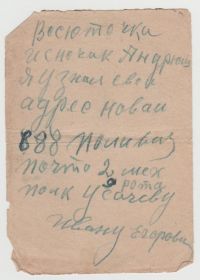 Васюточка
и сыночик Андрюш
я узнал свои
адрес новаи
888 Поливая
почто 2 мех
полк рота
Усачеву
Ивану Егорови